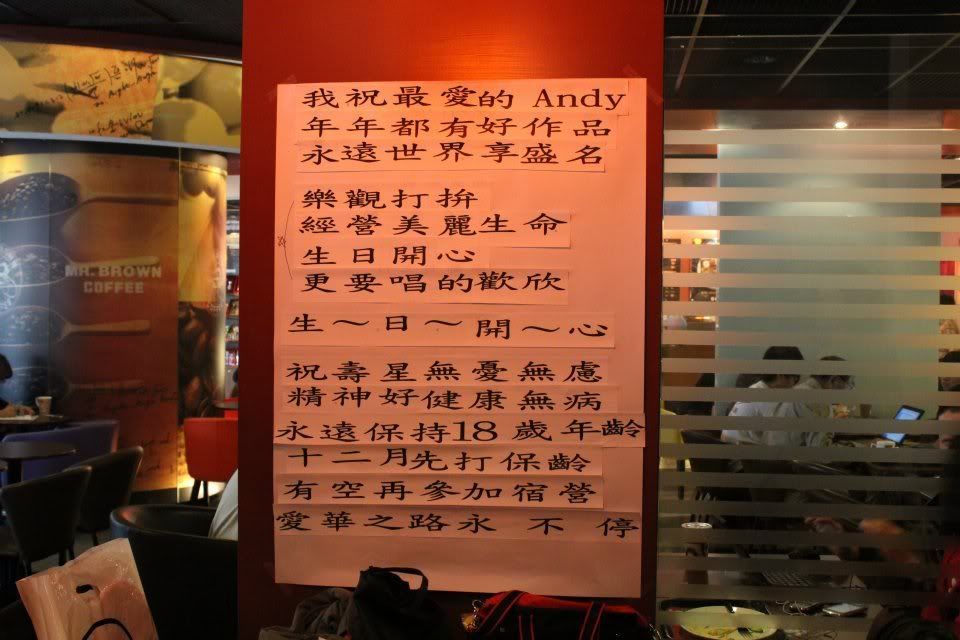 我祝最愛的 Andy
年年都有好作品
永遠世界享盛名
樂觀打拚
經營美麗生命
生日開心
更要唱的歡欣
生～日～開～心
祝壽星無憂無慮
精神好健康無病
永遠保持18歲年齡
十二月先打保齡
有空再參加宿營
愛華之路永不停
MR. BROWN
COFFEE